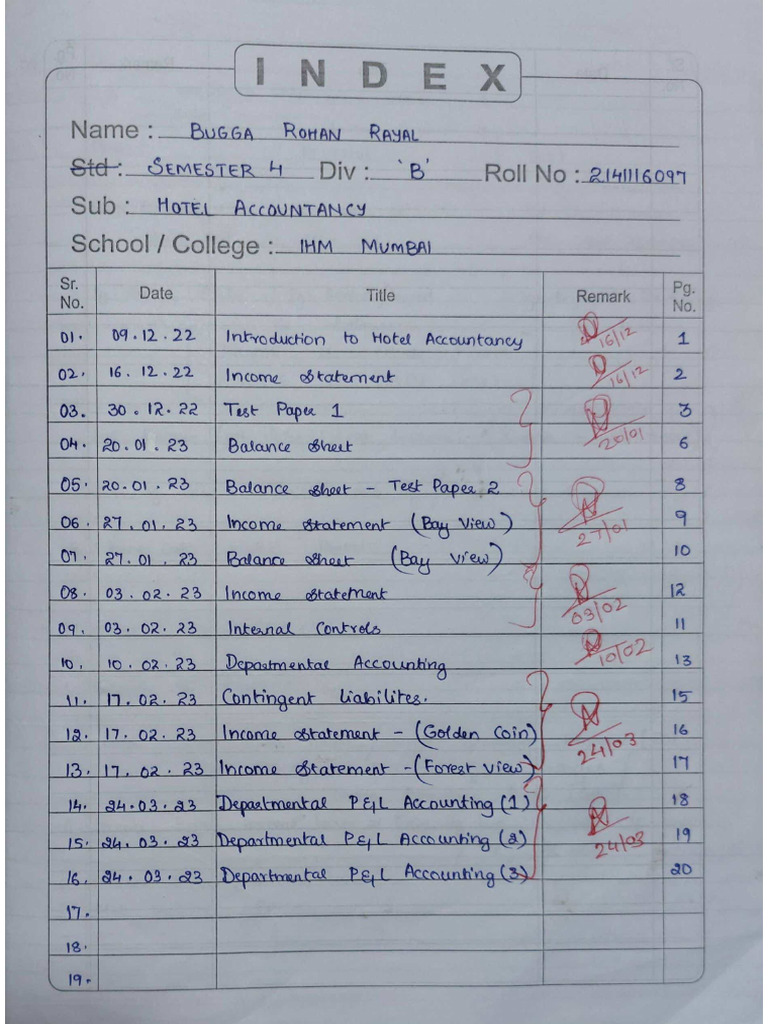 INDEX
Name : BUGGA ROHAN RAYAL
Std : SEMESTER 4 Div : 'B' Roll No : 2141116097
Sub : HOTEL ACCOUNTANCY
School / College : IHM MUMBAI
Sr. No. Date Title Remark Pg. No.
01. 09.12.22 Introduction to Hotel Accountancy 16/12 1
02. 16.12.22 Income Statement 16/12 2
03. 30.12.22 Test Paper 1 3
04. 20.01.23 Balance Sheet 20/01 6
05. 20.01.23 Balance Sheet - Test Paper 2 8
06. 27.01.23 Income Statement (Bay View) 27/01 9
07. 27.01.23 Balance Sheet (Bay View) 10
08. 03.02.23 Income Statement 03/02 12
09. 03.02.23 Internal Controls 11
10. 10.02.23 Departmental Accounting 10/02 13
11. 17.02.23 Contingent Liabilites. 15
12. 17.02.23 Income Statement - (Golden Coin) 24/03 16
13. 17.02.23 Income Statement - (Forest View) 17
14. 24.03.23 Departmental P&L Accounting (1) 18
15. 24.03.23 Departmental P&L Accounting (2) 24/03 19
16. 24.03.23 Departmental P&L Accounting (3) 20
17.
18.
19.